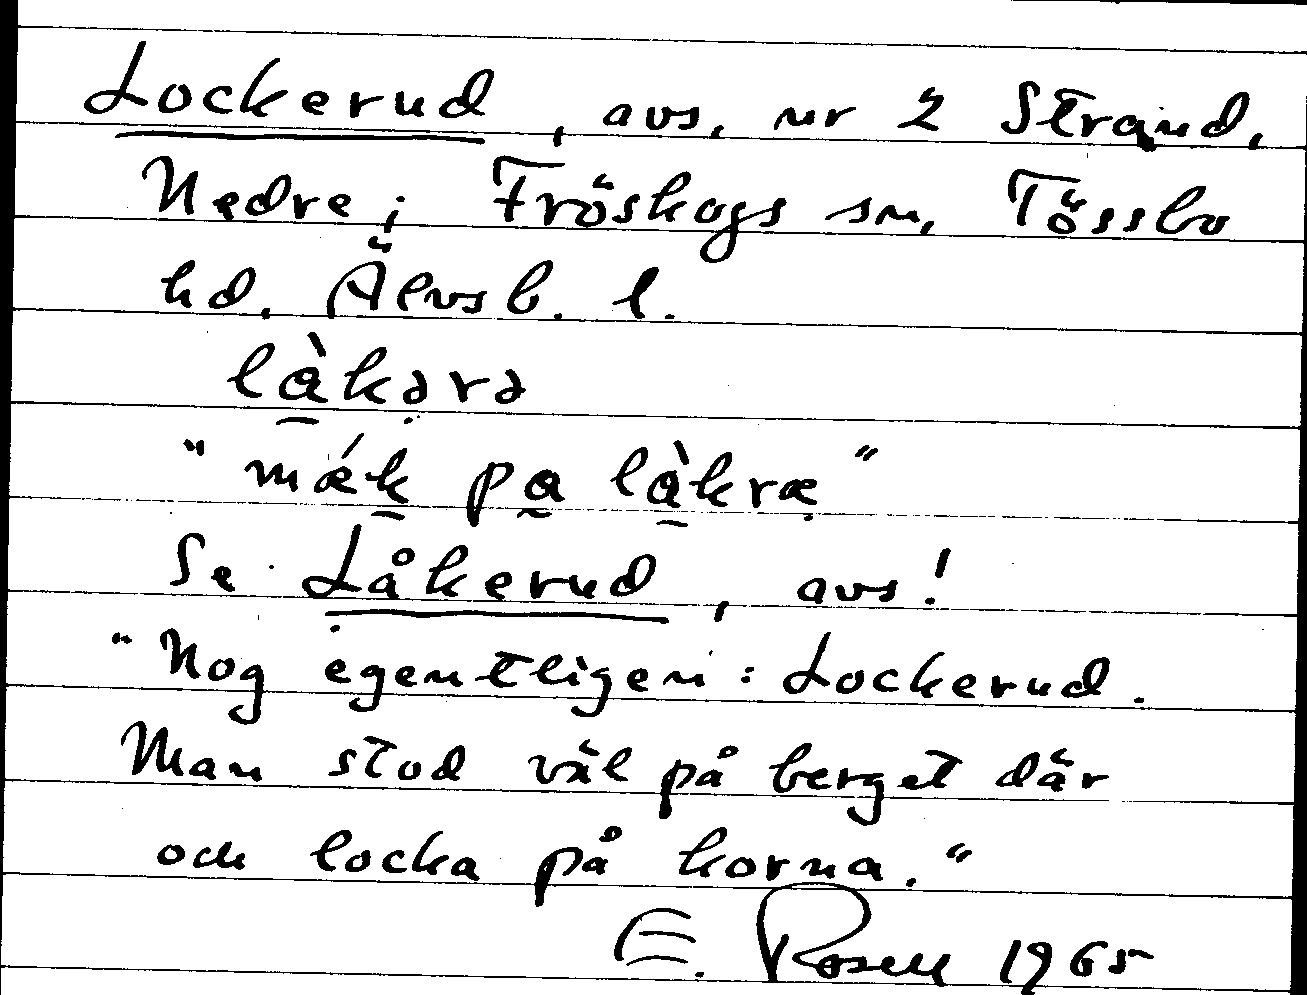 Lockerud, avs. nr 2 Strand,
Nedre; Fröskogs sn, Tössbo
hd. Älvsb. l.
lа̀kərə
"mǽk pa lа̀kræ"
Se Låkerud, avs!
"Nog egentligen: Lockerud.
Man stod väl på berget där
och locka på korna."
E. Rosell 1965